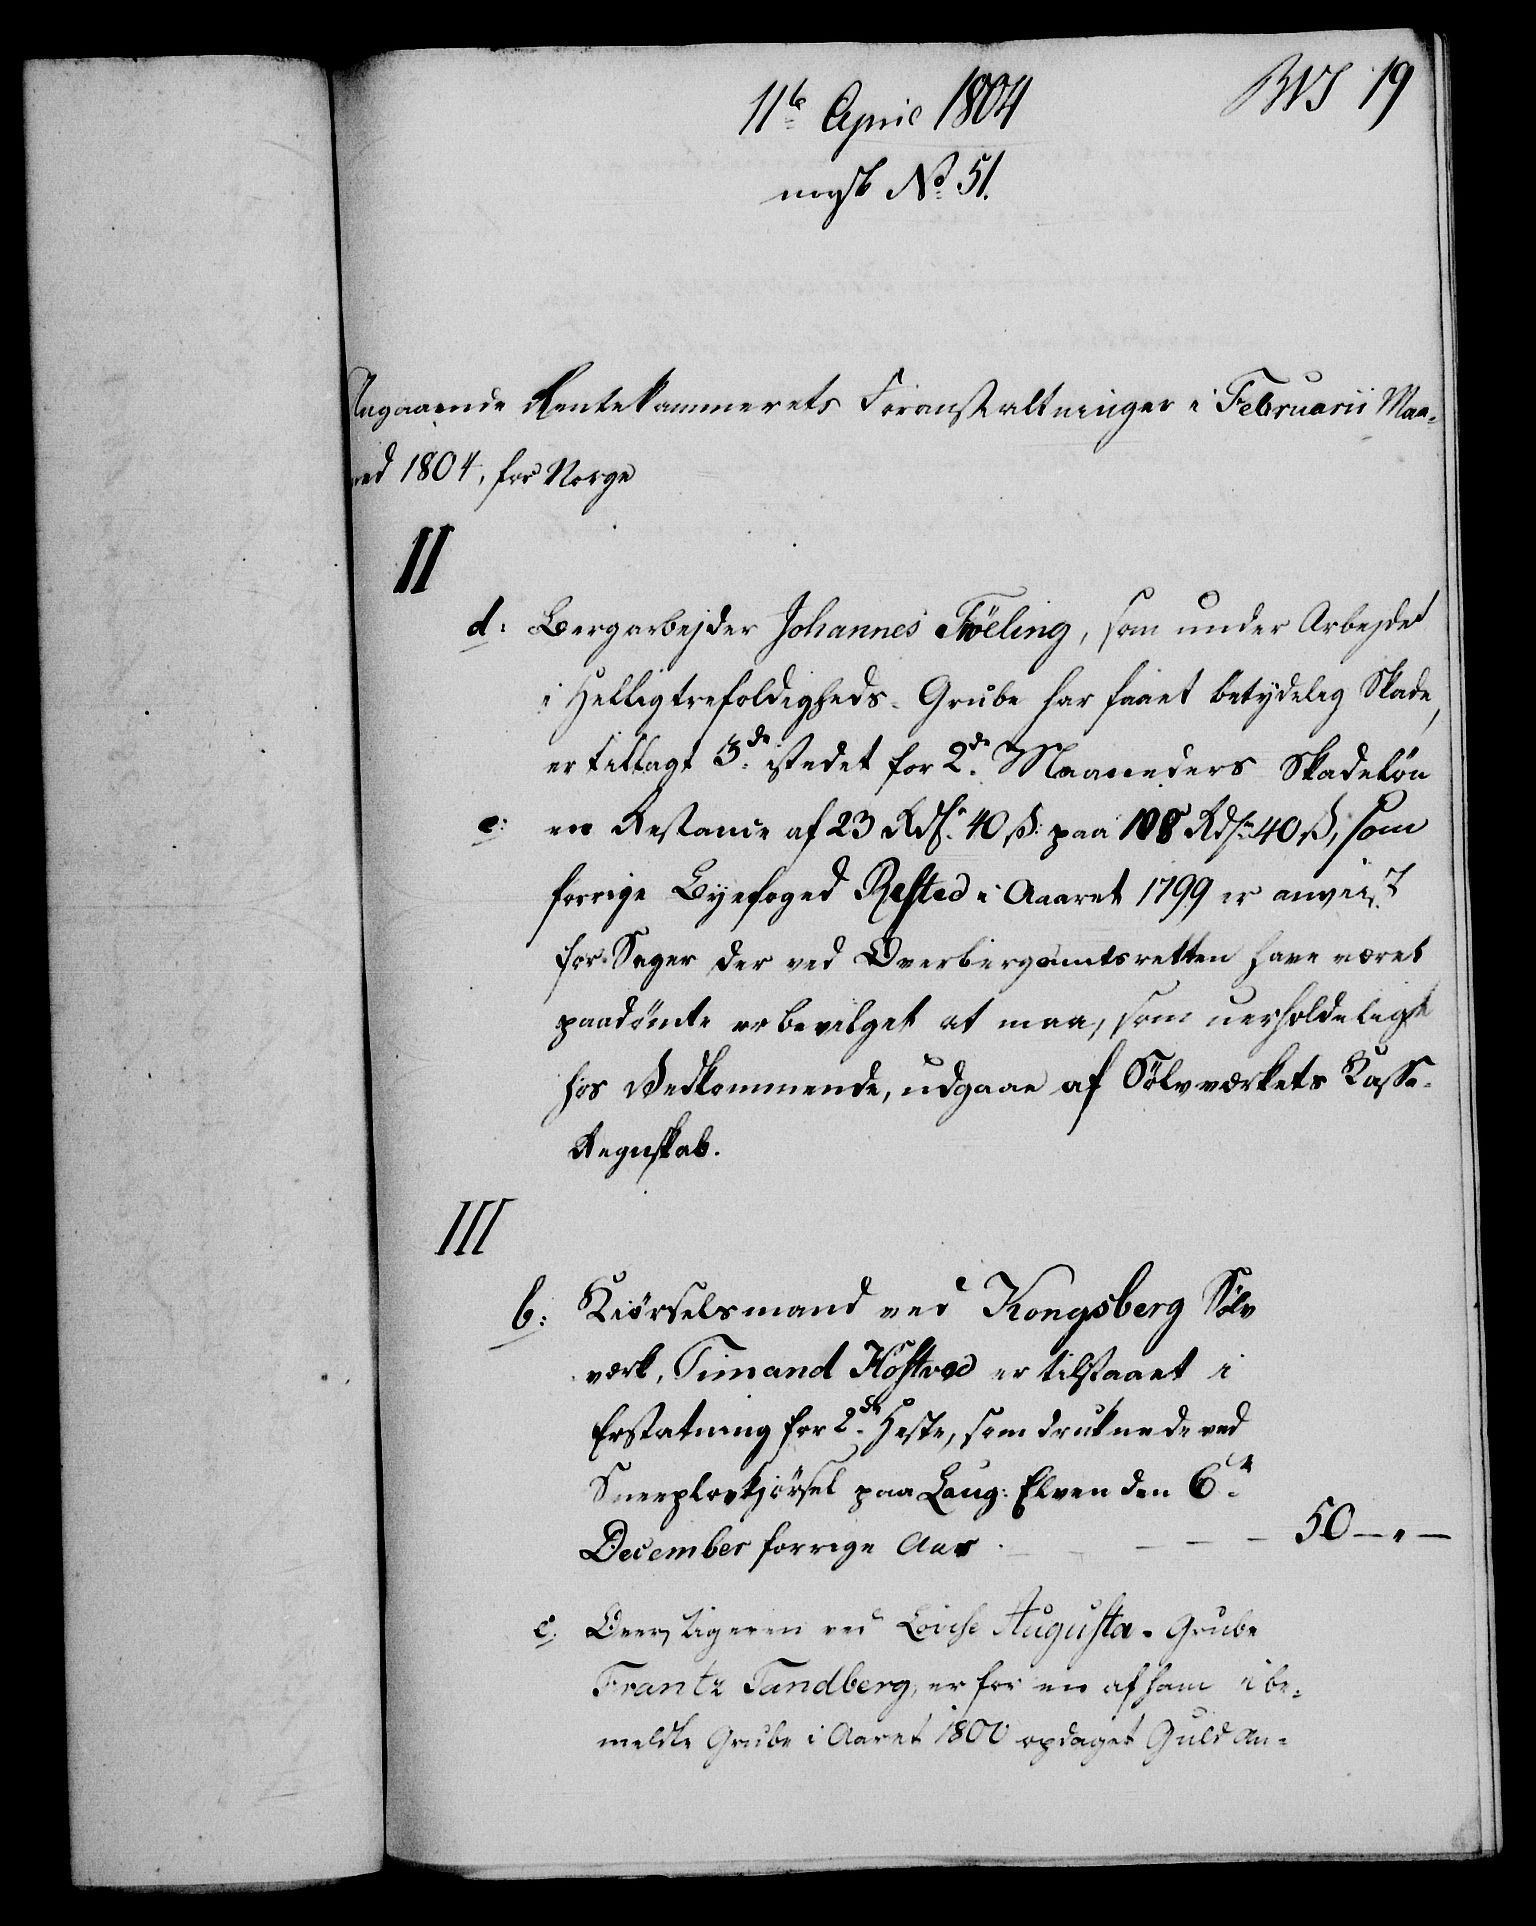 11te April 1804
19
No 51.
Angaaende Rentekammerets Foranstaltninger i Februarii Maa-
ned 1804, for Norge
II
d: Bergarbejder Johannes Föeling, som under Arbejdet
i Helligtrefoldigheds-Grube har faaet betydelig Skade,
er tillagt 3de istedet for 2de Maaneders Skadelön
e: en Restance af 23 Rdlr 40 ß paa 108 Rdlr 40 ß, som
forrige Byefoged Rested i Aaret 1799 er anviist
for Sager der ved Overbergamtsretten have været
paadömte er bevilget at maa, som uerholdeligt
hos Vedkommende, udgaae af Sölvværkets Kasse-
Regnskab.
III
b: Kiörselsmand ved Kongsberg Sölv
værk, Timand Hostved er tilstaaet i
Erstatning for 2de Heste, som druknede ved
Sneeplovkjörsel paa Laug: Elven den 6te
December forrige Aar. - - - - 50 - " -
c. Overstigeren ved Lovise Augusta-Grube
Frantz Tandberg, er for en af ham i be-
meldte Grube i Aaret 1800 opdaget Guld an-